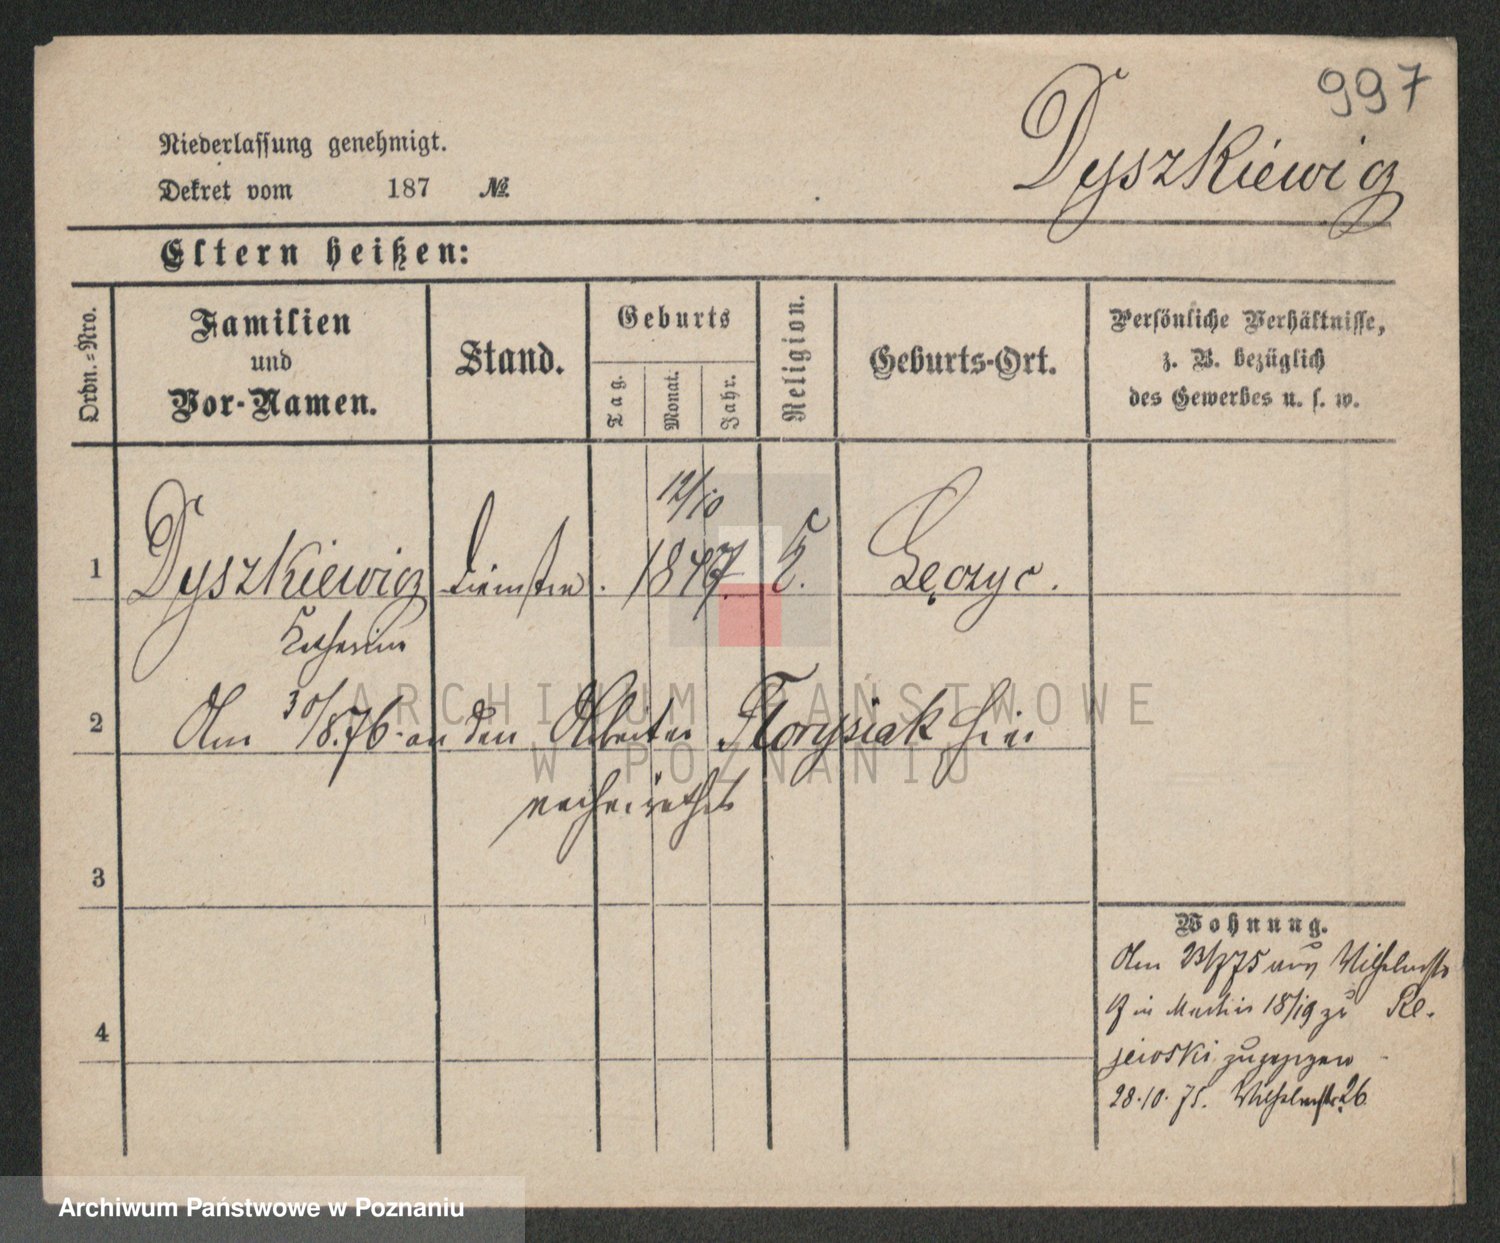 997
Dyszkiewicz
Niederlassung genehmigt.
Dekret vom 187 №
Eltern heißen:
Ordn.-Nro.
Familien
und
Vor-Namen.
Stand.
Geburts
Tag.
Monat.
Jahr.
Religion.
Geburts-Ort.
Persönliche Verhältnisse,
z. B. bezüglich
des Gewerbes u. s. w.
12/10
1 Dyszkiewicz 1847. k. Lęczyc.
Katharina
2 Am 30/8.76. an den Arbeiter Florysiak hier
verheirathet
3
4
Wohnung.
Am 23/7 75 aus Wilhelmstr
in Martin 18/19 zu Re-
jewski zugezogen
28.10.75. Wilhelmstr. 26
ARCHIWUM PAŃSTWOWE
W POZNANIU
Archiwum Państwowe w Poznaniu